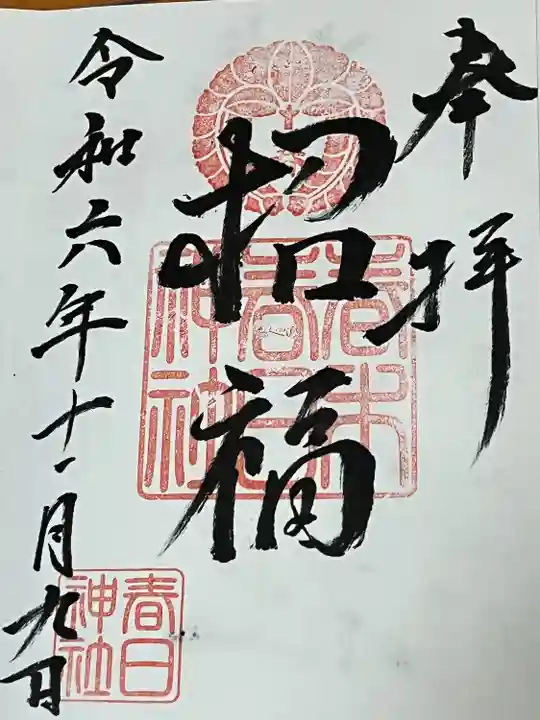 奉拝
招福
春木
春日
神社
令和六年十一月九日
春日
神社